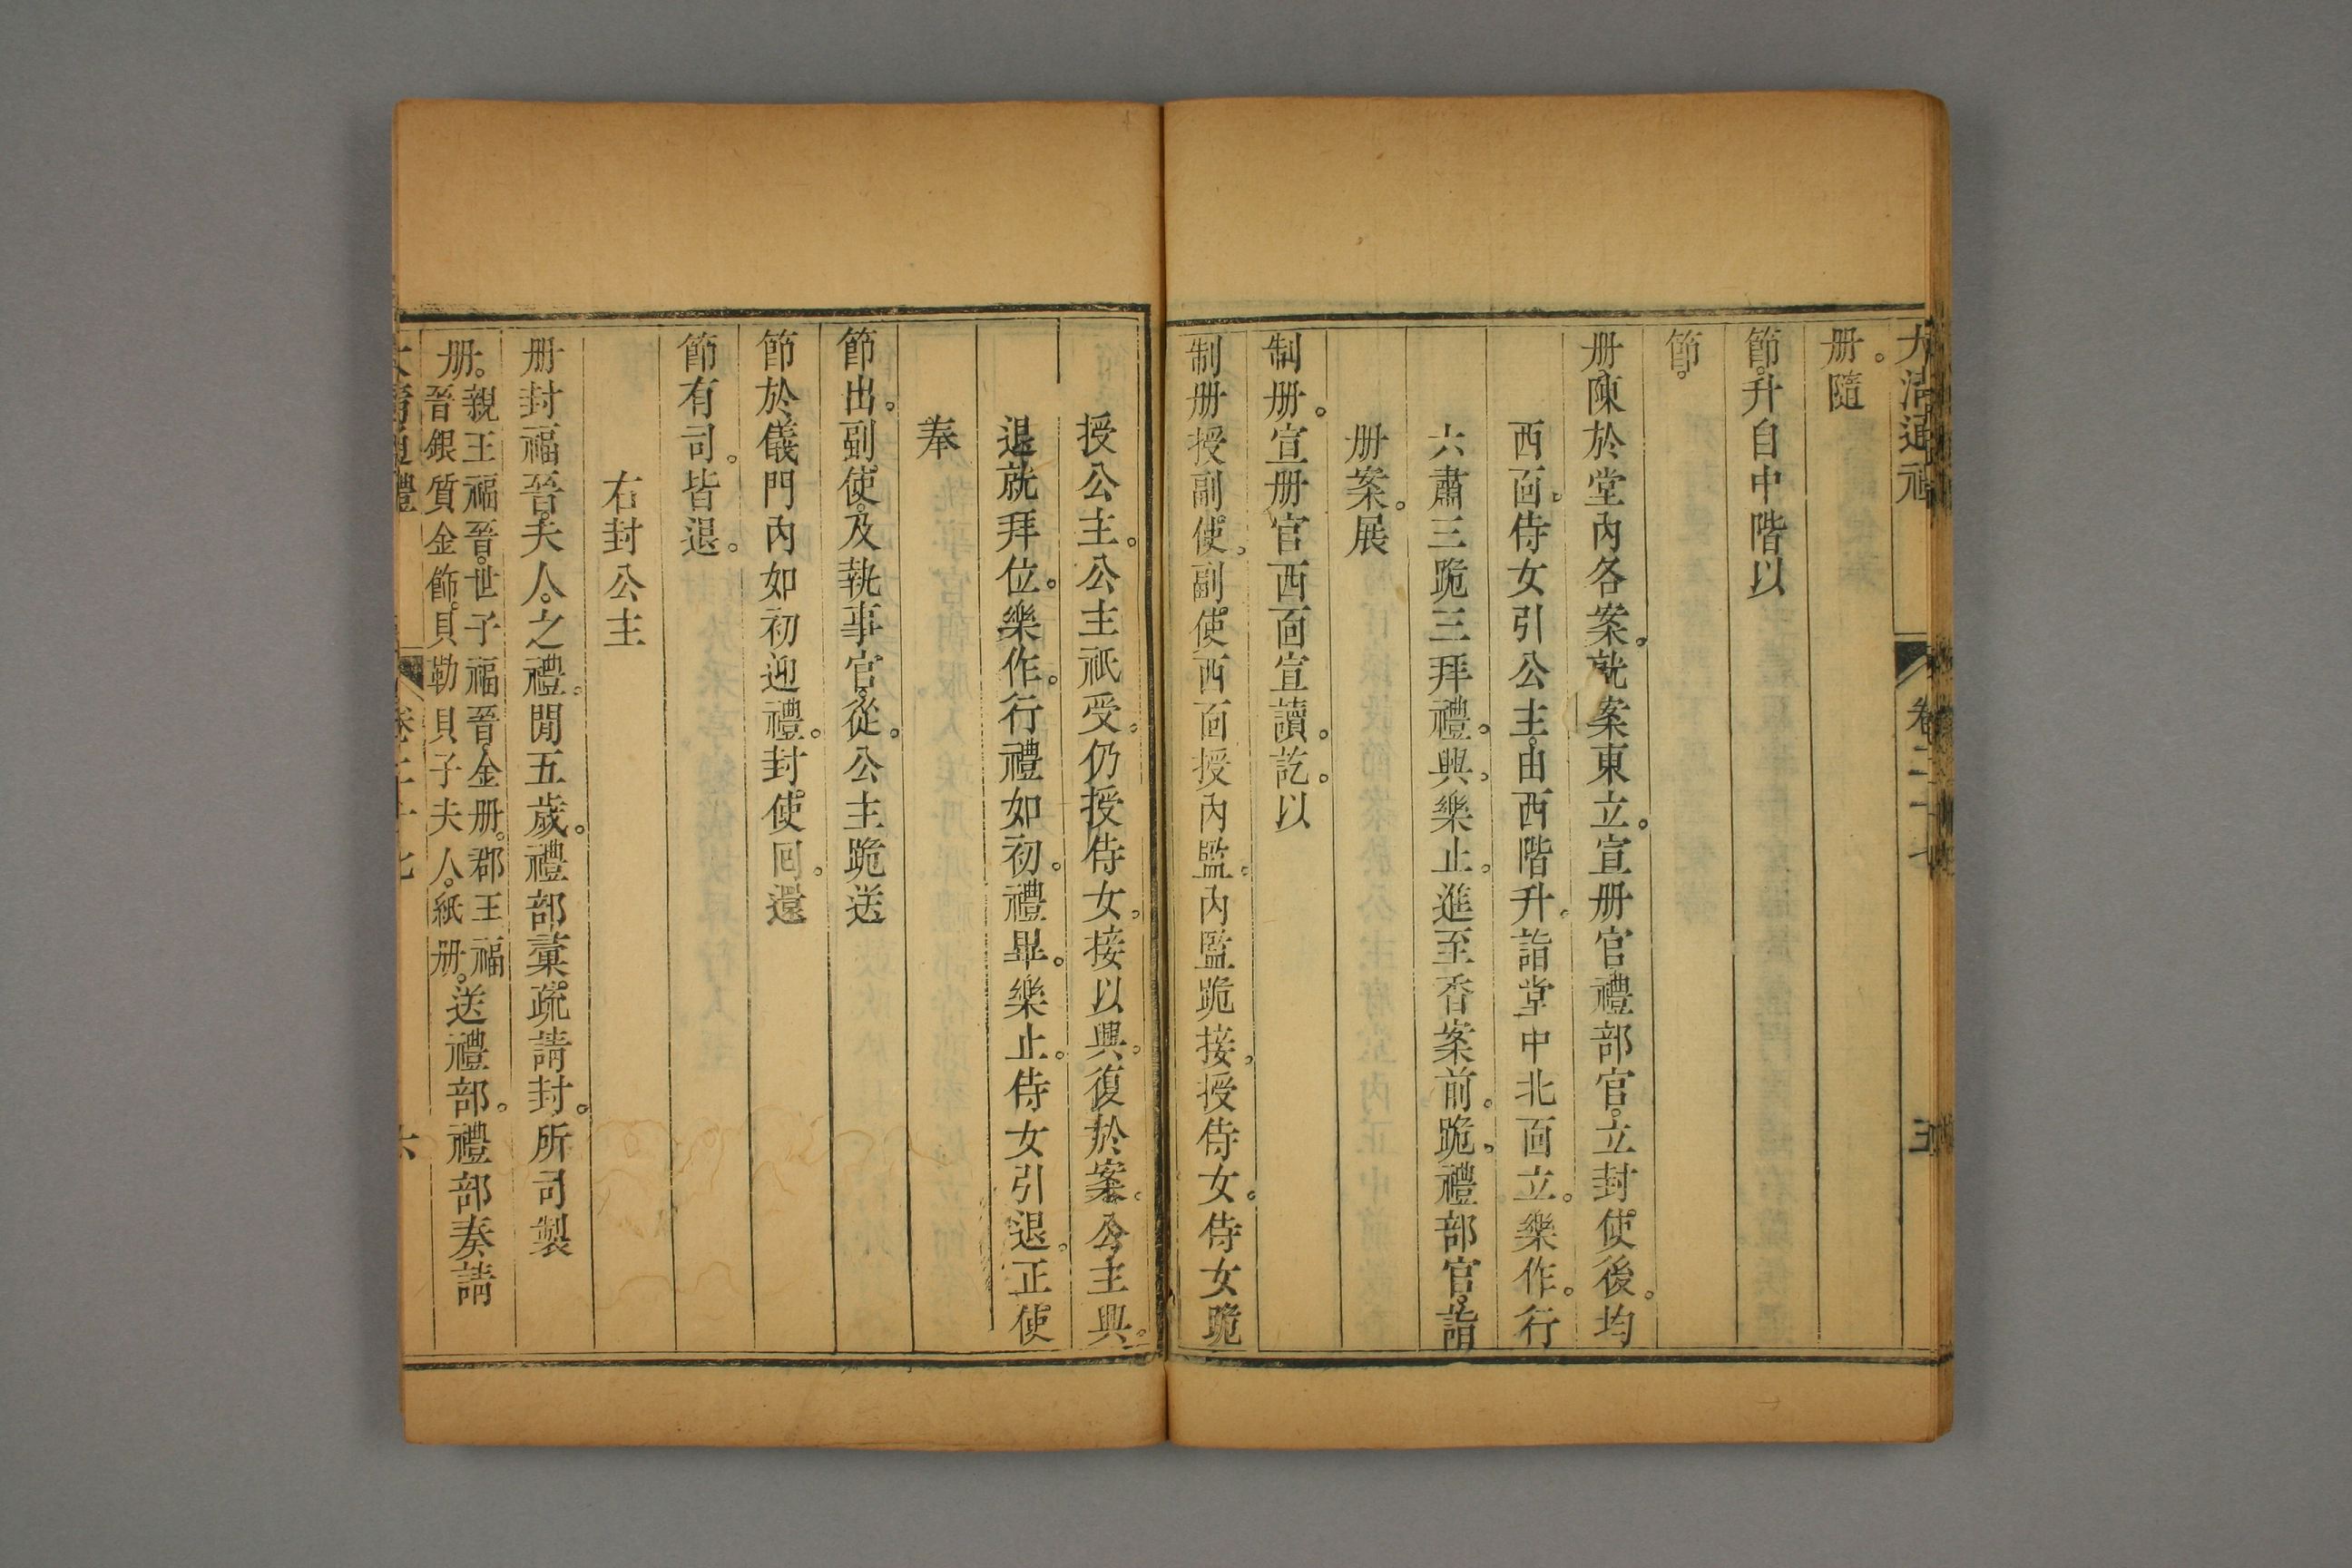 大清通禮 卷二十七
册。隨
節。升自中階以
節。
册陳於堂内各案。就案東立。宣册官禮部官。立封使後。均
西面。侍女引公主。由西階升。詣堂中北面立。樂作。行
六肅三跪三拜禮。興。樂止。進至香案前。跪。禮部官。詣
册案。展
制册。宣册官西面宣讀。訖。以
制册授副使。副使西面授内監。内監跪接。授侍女。侍女跪
授公主。公主祇受。仍授侍女。接以興。復於案。公主興。
退就拜位。樂作。行禮如初。禮畢。樂止。侍女引退。正使
奉
節出。副使。及執事官。從。公主跪送
節於儀門内如初迎禮。封使回。還
節有司。皆退。
右封公主
册封福晉。夫人。之禮。閒五歲。禮部彙。疏請封。所司製
册。親王福晉。世子福晉。金册。郡王福
晉銀質金飾。貝勒貝子夫人。紙册。送禮部。禮部奏請
大清通禮 卷二十七 六